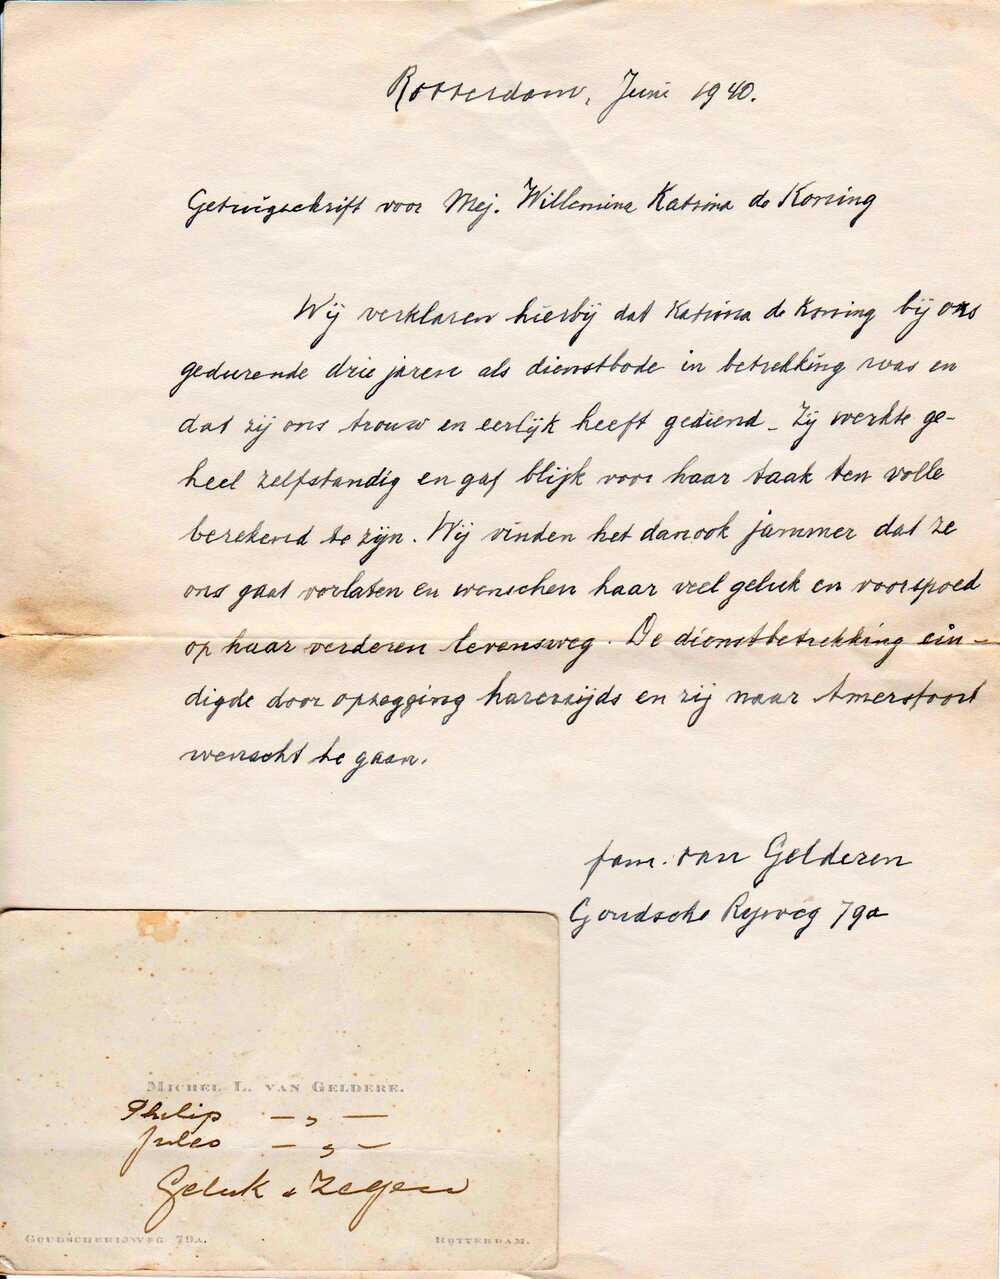 Rotterdam, Juni 1940.
Getuigschrift voor Mej. Willemina Katrina de Koning
Wij verklaren hierbij dat Katrina de Koning bij ons
gedurende drie jaren als dienstbode in betrekking was en
dat zij ons trouw en eerlijk heeft gediend _ Zij werkte ge-
heel zelfstandig en gaf blijk voor haar taak ten volle
berekend te zijn. Wij vinden het dan ook jammer dat ze
ons gaat verlaten en wenschen haar veel geluk en voorspoed
op haar verderen levensweg. De dienstbetrekking ein-
digde door opzegging harerzijds en zij naar Amersfoort
wenscht te gaan.
fam. van Gelderen
Goudsche Rijweg 79a
MICHEL L. VAN GELDERE.
Philip — „ —
Jules — „ —
Geluk & Zegen
GOUDSCHERIJWEG 79A. ROTTERDAM.